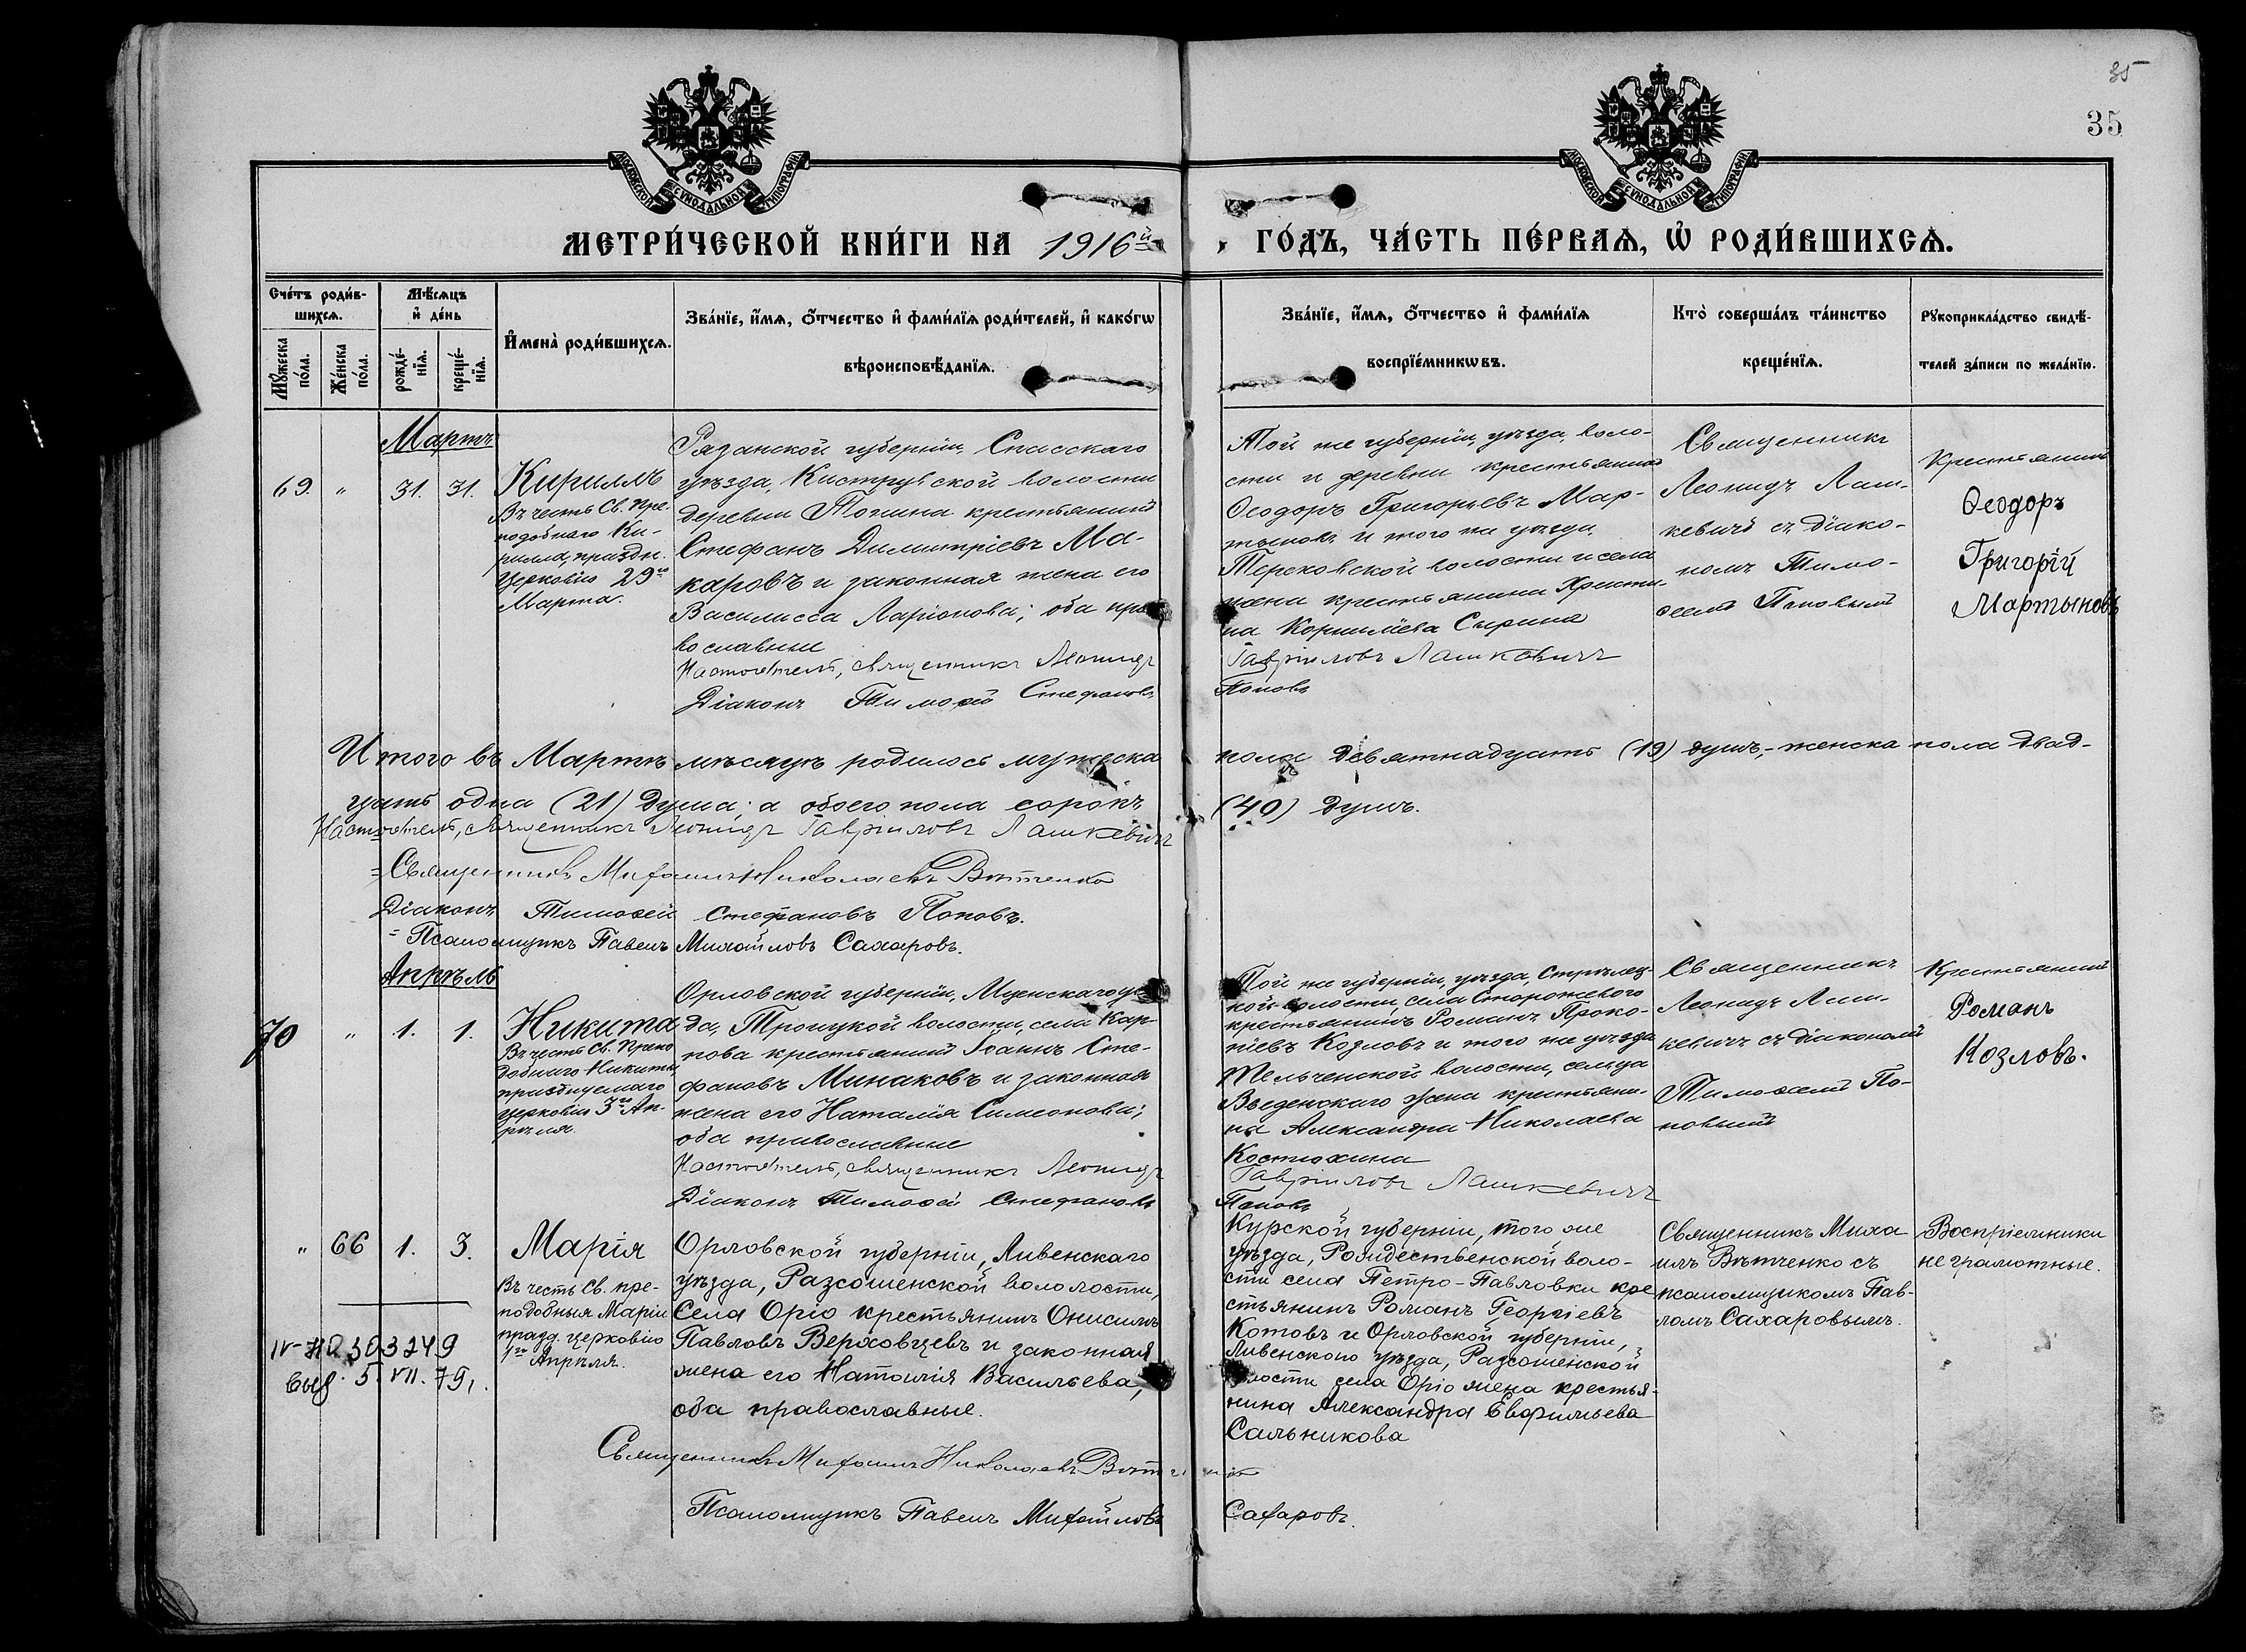 35
35
МОСКОВСКОЙ СѴНОДАЛЬНОЙ ТИПОГРАФІИ
МОСКОВСКОЙ СѴНОДАЛЬНОЙ ТИПОГРАФІИ
МЕТРИ́ЧЕСКОЙ КНИ́ГИ НА 1916й
ГО́ДЪ, ЧА́СТЬ ПЕ́РВАѦ, Ѡ҆ РОДИ́ВШИХСѦ.
Сче́тъ роди́в-
шихсѧ.
Мꙋ́жеска по́ла.
Же́нска по́ла.
Мѣ́сѧцъ
и҆ де́нь
рожде́-
нїѧ.
креще́-
нїѧ.
И҆мена̀ роди́вшихсѧ.
Зва́нїе, и҆́мѧ, ѻ҆́тчество и҆ фами́лїѧ роди́телей, и҆ како́гѡ
вѣроисповѣ́данїѧ.
Зва́нїе, и҆́мѧ, ѻ҆́тчество и҆ фами́лїѧ
воспрїе́мникѡвъ.
Кто̀ соверша́лъ та́инство
креще́нїѧ.
Рꙋкоприкла́дство свидѣ́-
телей за́писи по жела́нїю.
Мартъ
69. " 31. 31.
Кириллъ
Въ честь Св. Пре-
подобнаго Ки-
рилла, праздн.
Церковію 29го
Марта.
Рязанской губерніи, Спасскаго
уѣзда, Киструсской волости
деревни Тонина крестьянинъ
Стефанъ Димитріевъ Ма-
каровъ и законная жена его
Василисса Ларіонова; оба пра-
вославные
Настоятель, священникъ Леонидъ
Діаконъ Тимоѳей Стефановъ
Той же губерніи, уѣзда, воло-
сти и деревни крестьянинъ
Ѳеодоръ Григорьевъ Мар-
тыновъ и того же уѣзда,
Тереховской волости и села
жена крестьянина Христи-
на Корнилiева Сирина
Гавріиловъ Лашкевичъ
Поповъ
Священникъ
Леонидъ Лаш-
кевичъ съ діако-
номъ Тимо-
ѳеемъ Поповымъ
Крестьянинъ
Ѳеодоръ
Григорій
Мартыновъ
Итого въ Мартѣ мѣсяцѣ родилось мужеска
пола девятнадцать (19) душъ, - женска пола двад-
цать одна (21) душа; а обоего пола сорокъ
(40) душъ.
Настоятель, священникъ Леонидъ Гавріиловъ Лашкевичъ
Священникъ Михаилъ Николаевъ Вѣтченко
Діаконъ Тимоѳей Стефановъ Поповъ.
Псаломщикъ Павелъ Михайловъ Сахаровъ.
Апрѣль
70 " 1. 1.
Никита
Въ честь Св. Препо
добнаго Никиты,
празднуемаго
церковію 3го Ап-
рѣля.
Орловской губерніи, Мценскаго уѣз-
да, Троицкой волости, села Кар-
пова крестьянинъ Іоаннъ Сте-
фановъ Минаковъ и законная
жена его Наталія Симеонова;
оба православные
Настоятель, священникъ Леонидъ
Діаконъ Тимоѳей Стефановъ
Той же губерніи, уѣзда, Стрѣлец-
кой волости, села Сторожевого
крестьянинъ Романъ Проко-
піевъ Козловъ и того же уѣзда
Тельченской волости, сельца
Введенскаго жена крестьяни-
на Александра Николаева
Костюхина
Гавріиловъ Лашкевичъ
Поповъ
Священникъ
Леонидъ Лаш-
кевичъ съ діакономъ
Тимоѳеемъ По-
повымъ
Крестьянинъ
Романъ
Козловъ.
" 66 1. 3.
Марія
Въ честь Св. пре-
подобныя Маріи
празд. церковію
1го Апрѣля.
IV-НО 303249
выд. 5. VII. 79г.
Орловской губерніи, Ливенскаго
уѣзда, Разсошенской вололости,
Села Оріо крестьянинъ Онисимъ
Павловъ Верховцевъ и законная
жена его Наталія Васильева,
оба православные.
Священникъ Михаилъ Николаевъ Вѣтченко
Псаломщикъ Павелъ Михайловъ
Сахаровъ.
Курской губерніи, того же
уѣзда, Рождественской воло-
сти села Петро-Павловки кре
стьянинъ Романъ Георгіевъ
Котовъ и Орловской губерніи,
Ливенскаго уѣзда, Разсошенской
волости села Оріо жена крестья-
нина Александра Евфимьева
Сальникова
Священникъ Миха
илъ Вѣтченко съ
псаломщикомъ Пав-
ломъ Сахаровымъ.
Воспріемники
не грамотные.